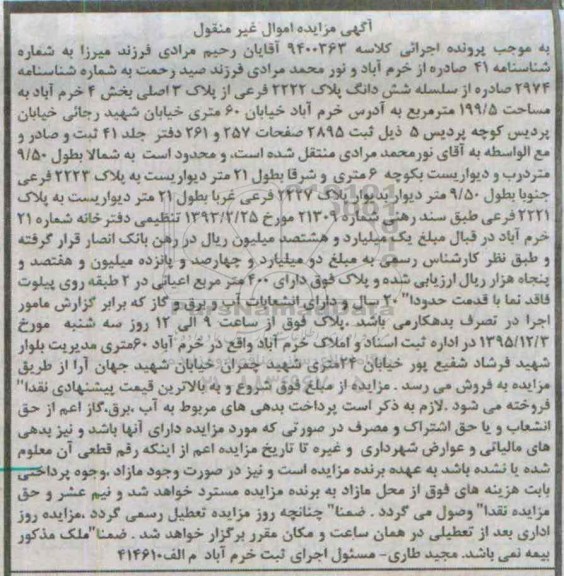 آگهی مزایده اموال غیر منقول
به موجب پرونده اجرائی کلاسه ۹۴۰۰۳۶۳ آقایان رحیم مرادی فرزند میرزا به شماره
شناسنامه ۴۱ صادره از خرم آباد و نور محمد مرادی فرزند صید رحمت به شماره شناسنامه
۲۹۷۴ صادره از سلسله شش دانگ پلاک ۲۲۲۲ فرعی از پلاک ۳ اصلی بخش ۴ خرم آباد به
مساحت ۱۹۹/۵ مترمربع به آدرس خرم آباد خیابان ۶۰ متری خیابان شهید رجائی خیابان
پردیس کوچه پردیس ۵ ذیل ثبت ۲۸۹۵ صفحات ۲۵۷ و ۲۶۱ دفتر جلد ۴۱ ثبت و صادر و
مع الواسطه به آقای نورمحمد مرادی منتقل شده است. و محدود است به شمالا بطول ۹/۵۰
متردرب و دیواریست بکوچه ۶ متری و شرقا بطول ۲۱ متر دیواریست به پلاک ۲۲۲۳ فرعی
جنوبا بطول ۹/۵۰ متر دیوار بدیوار پلاک ۲۲۲۷ فرعی غربا بطول ۲۱ متر دیواریست به پلاک
۲۲۲۱ فرعی طبق سند رهنی شماره ۲۱۳۰۹ مورخ ۱۳۹۲/۲/۲۵ تنظیمی دفتر خانه شماره ۲۱
خرم آباد در قبال مبلغ یک میلیارد و هشتصد میلیون ریال در رهن بانک انصار قرار گرفته
و طبق نظر کارشناس رسمی به مبلغ دو میلیارد و چهارصد و پانزده میلیون و هفتصد و
پنجاه هزار ریال ارزیابی شده و پلاک فوق دارای ۴۰۰ متر مربع اعیانی در ۲ طبقه روی پیلوت
فاقد نما با قدمت حدودا" ۲۰ سال و دارای انشعابات آب و برق و گاز که برابر گزارش مامور
اجرا در تصرف بدهکارمی باشد .پلاک فوق از ساعت ۹ الی ۱۲ روز سه شنبه مورخ
۱۳۹۵/۱۲/۳ در اداره ثبت اسناد و املاک خرم آباد واقع در خرم آباد ۶۰متری مدیریت بلوار
شهید فرشاد شفیع پور خیابان ۲۴متری شهید چمران خیابان شهید جهان آرا از طریق
مزایده به فروش می رسد . مزایده از مبلغ فوق شروع و به بالاترین قیمت پیشنهادی نقدا"
فروخته می شود .لازم به ذکر است پرداخت بدهی های مربوط به آب ،برق،گاز اعم از حق
انشعاب و یا حق اشتراک و مصرف در صورتی که مورد مزایده دارای آنها باشد و نیز بدهی
های مالیاتی و عوارض شهرداری و غیره تا تاریخ مزایده اعم از اینکه رقم قطعی آن معلوم
شده یا نشده باشد به عهده برنده مزایده است و نیز در صورت وجود مازاد ،وجوه پرداختی
بابت هزینه های فوق از محل مازاد به برنده مزایده مسترد خواهد شد و نیم عشر و حق
مزایده نقدا" وصول می گردد . ضمنا" چنانچه روز مزایده تعطیل رسمی گردد ،مزایده روز
اداری بعد از تعطیلی در همان ساعت و مکان مقرر برگزار خواهد شد . ضمنا"ملک مذکور
بیمه نمی باشد. مجید طاری- مسئول اجرای ثبت خرم آباد م الف۴۱۴۶۱۰